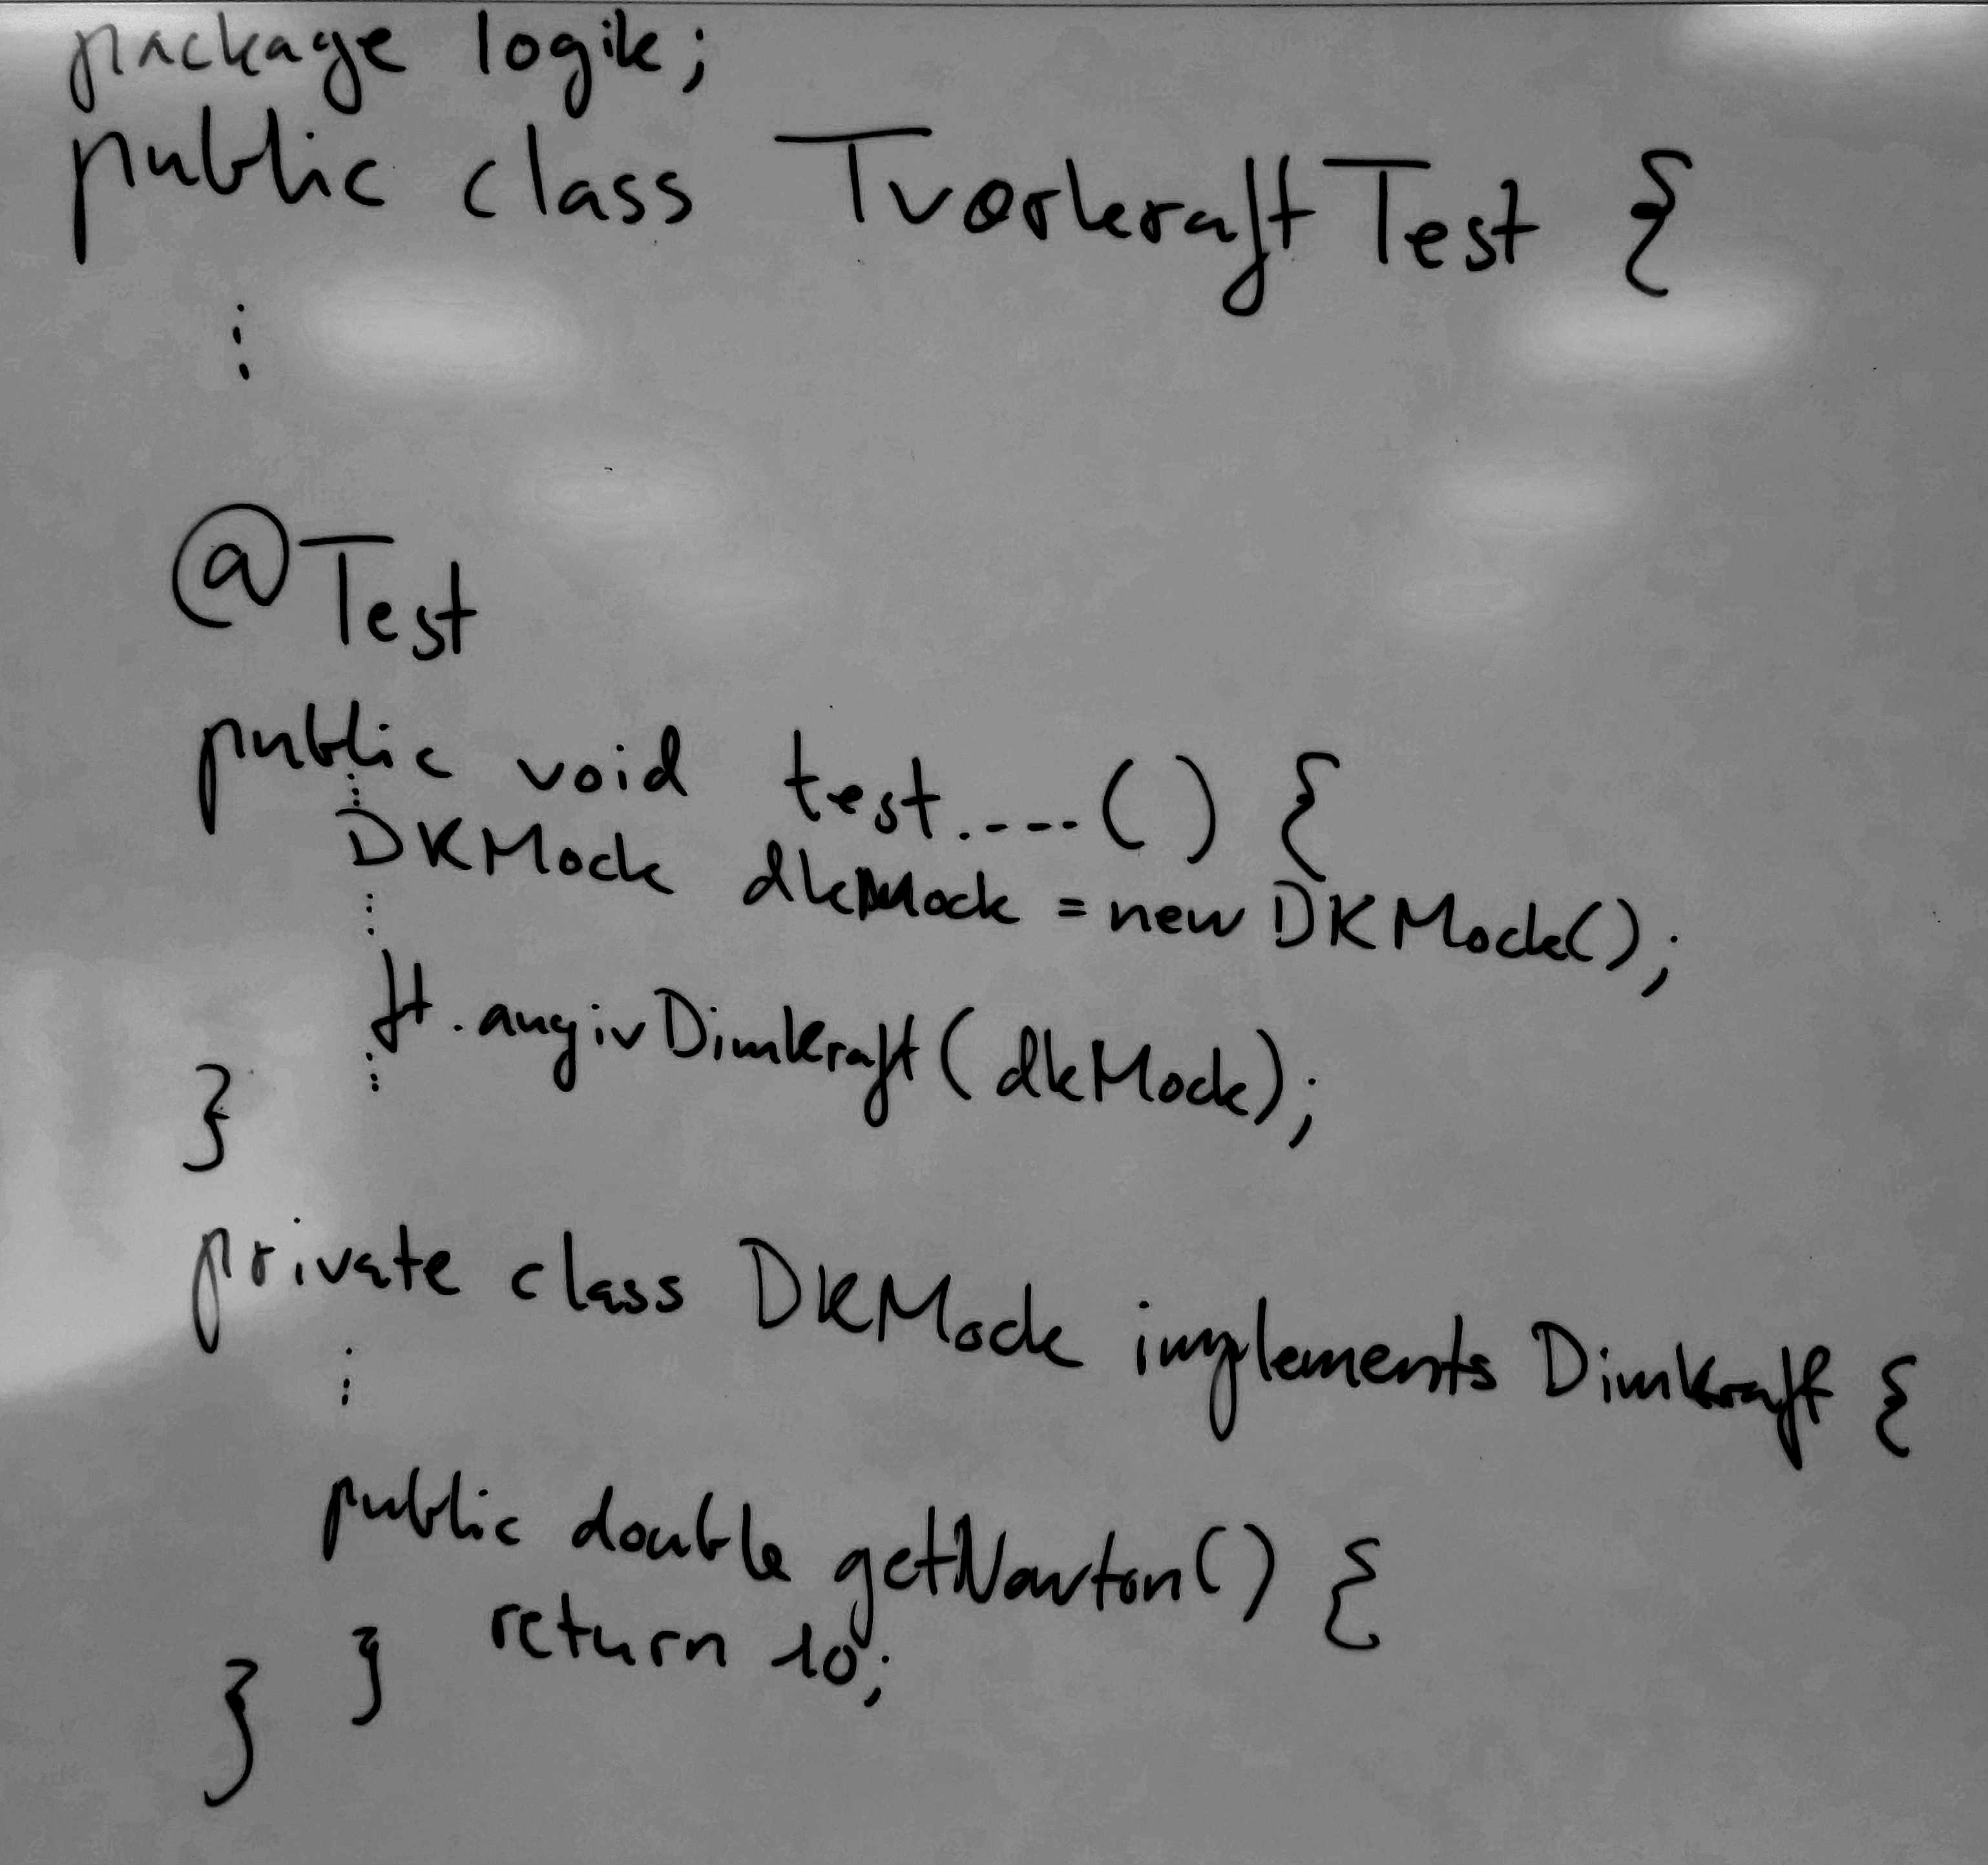 package logik;
public class TvorkraftTest {
⋮
@Test
public void test....() {
⋮
DKMock dkMock = new DKMock();
⋮
ft.angivDimkraft(dkMock);
⋮
}
private class DKMock implements Dimkraft {
⋮
public double getNewton() {
return 10;
}
}